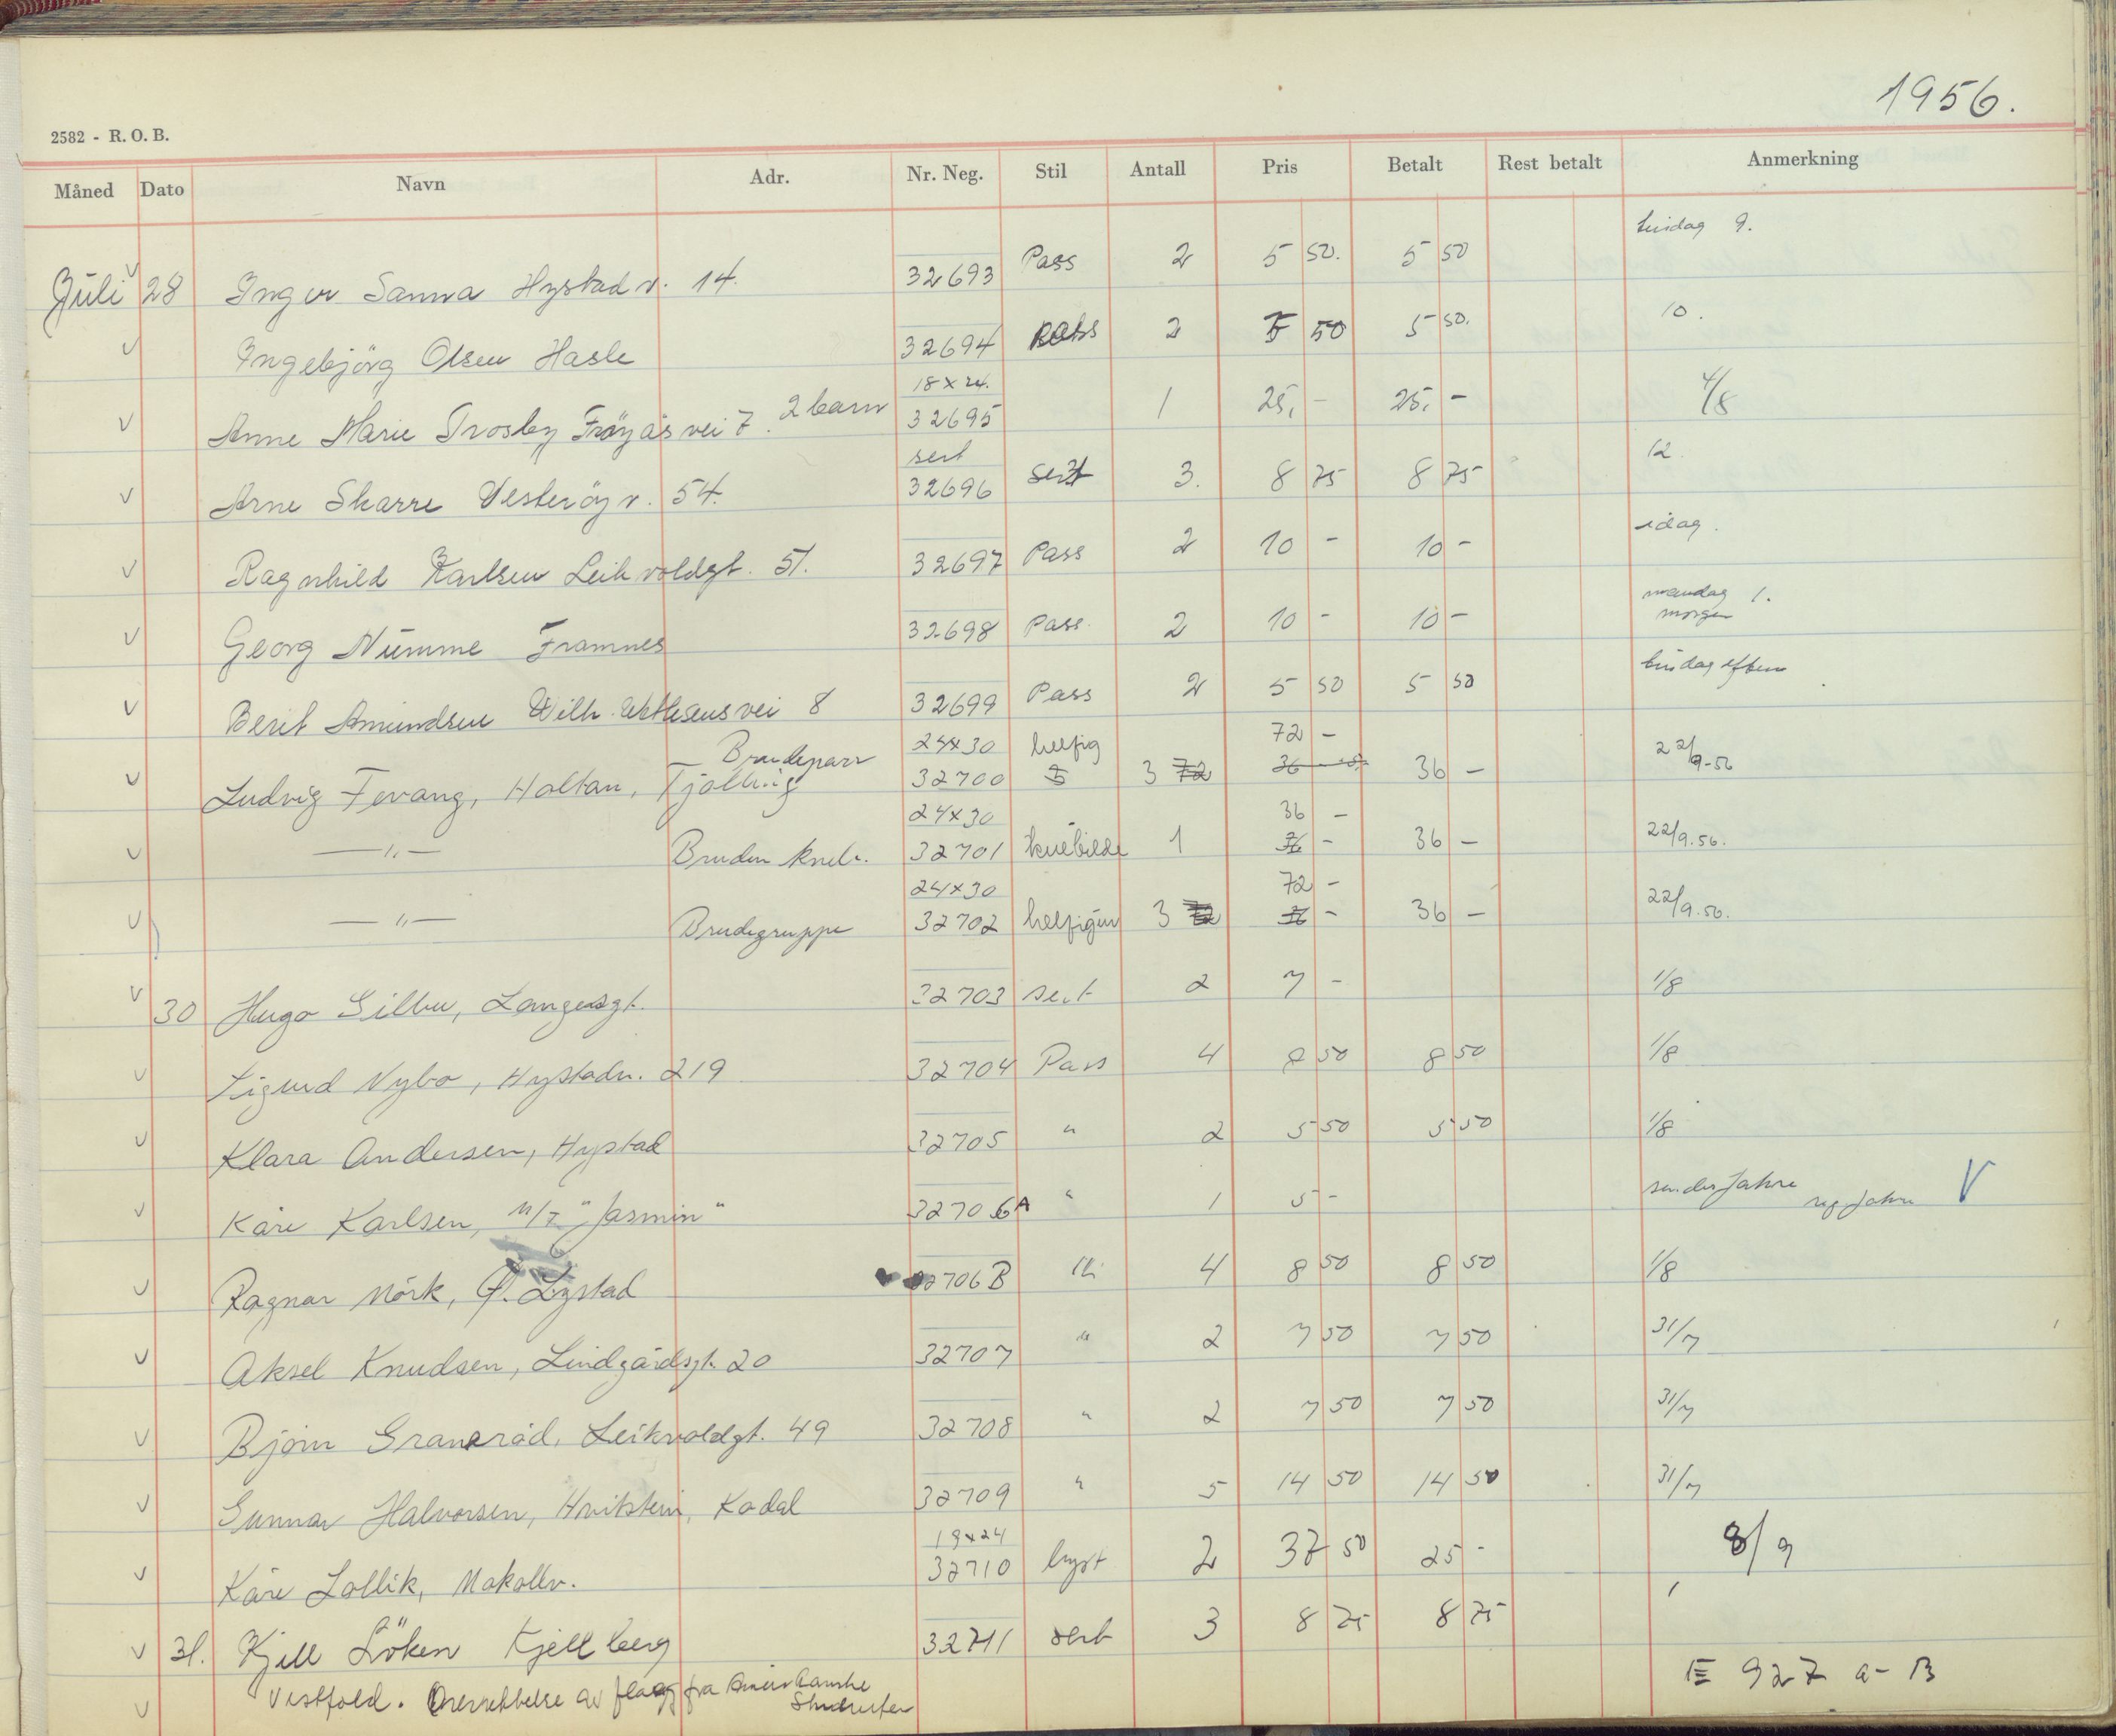 1956.
2582 - R. O. B.
Måned Dato Navn Adr. Nr. Neg. Stil Antall Pris Betalt Rest betalt Anmerkning
Juli 28 Inger Sanna Hystad v. 14. 32693 Pass 2 5 50. 5 50 9.
Ingebjörg Olsen Hasle 32694 pass 2 5 50 5 50. 10.
18 x 24.
Anne Marie Trosby Fröyås vei 7. 2 barn 32695 1 25,- 25,- 4/8
sert
Arne Skarre Vesteröy v. 54. 32696 sert 3. 8 75 8 75 12.
Ragnhild Karlsen Leikvoldgt. 51. 32697 Pass 2 10 - 10 - idag.
Georg Numme Framnes 32698 Pass. 2 10 - 10 - mandag 1.
morgen
Berit Amundsen Wilh. Wetlesensvei 8 32699 Pass 2 5 50 5 50
Brudepar 24x30 helfig 72 -
Ludvig Fevang, Holtan, Tjølling 32700 5 3 72 36 - 36 - 22/9-56
24x30 36 -
—"— Bruden kneb. 32701 knebilde 1 36 - 22/9.56.
24x30 72 -
—"— Brudegruppe 32702 helfigur 3 72 36 - 36 - 22/9.56.
30 Hugo Gilbu, Langesgt. 32703 sert 2 7 - 1/8
Sigurd Nybo, Hystadv. 219 32704 Pass 4 8 50 8 50 1/8
Klara Andersen, Hystad 32705 " 2 5 50 5 50 1/8
Kåre Karlsen, M/T "Jasmin" 32706A " 1 5 - sender Jahre reg Jahre V
Ragnar Mörk, Ø. Lystad 32706 B 4 8 50 8 50 1/8
Aksel Knudsen, Lindgårdsgt. 20 32707 " 2 7 50 7 50 31/7
Bjørn Granerød, Leikvoldgt. 49 32708 " 2 7 50 7 50 31/7
Gunnar Halvorsen, Hvitstein, Kodal 32709 " 5 14 50 14 50 31/7
18x24
Kåre Lollik, Mokollv. 32710 byst 2 37 50 25 - 8/9
31. Kjell Löken Kjellberg 32711 sert 3 8 75 8 75
Vestfold. Overrekkelse av flagg fra Amerikanske E 927 a - B
Studenter